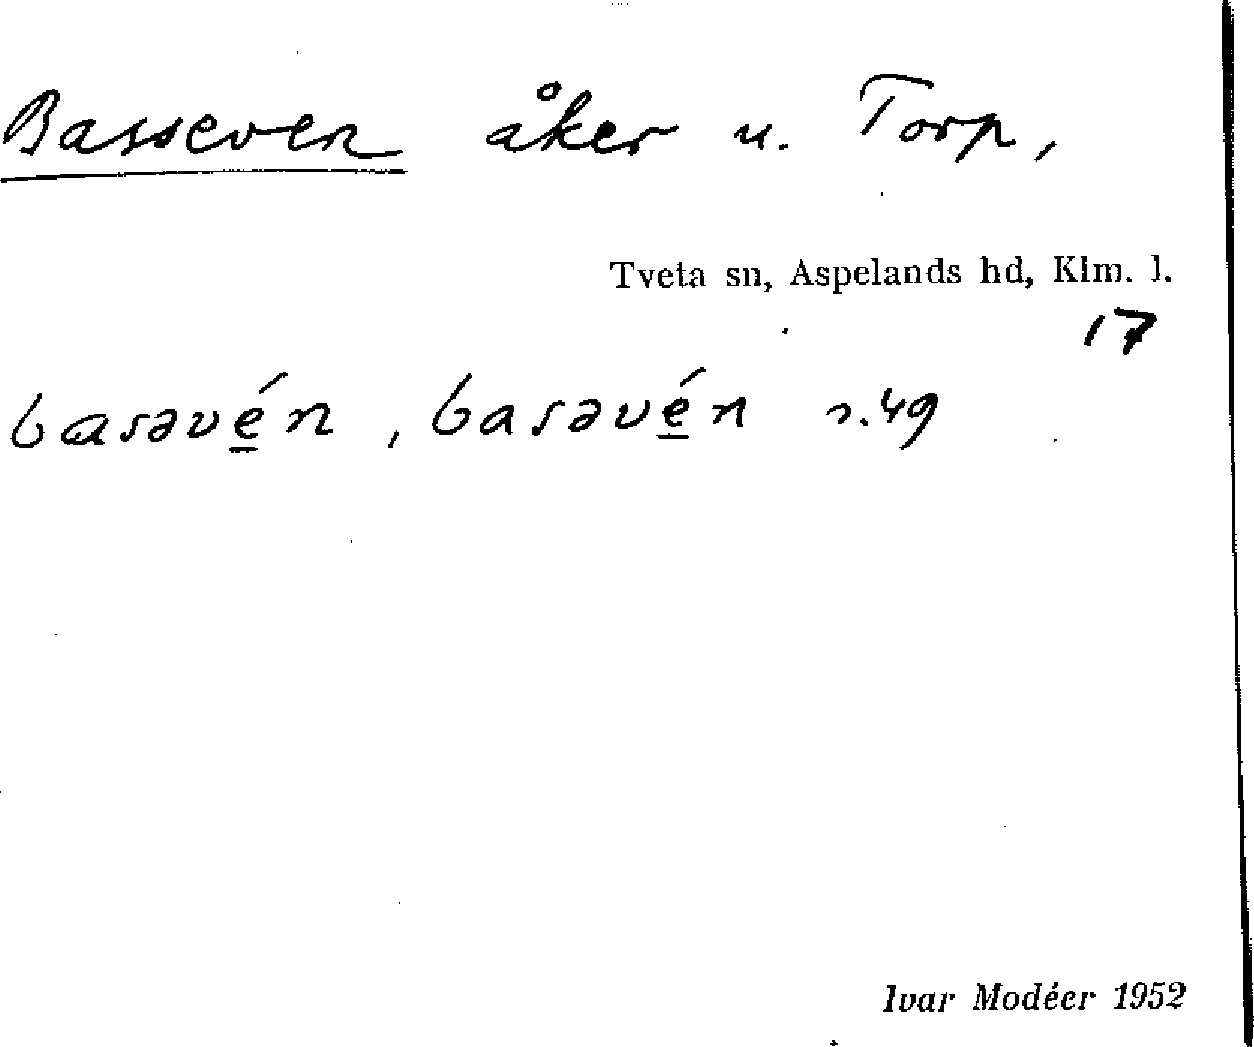 Basseven åker u. Torp,
Tveta sn, Aspelands hd, Klm. l.
17
basəvé̱n, basəvé̱n s.49
Ivar Modéer 1952